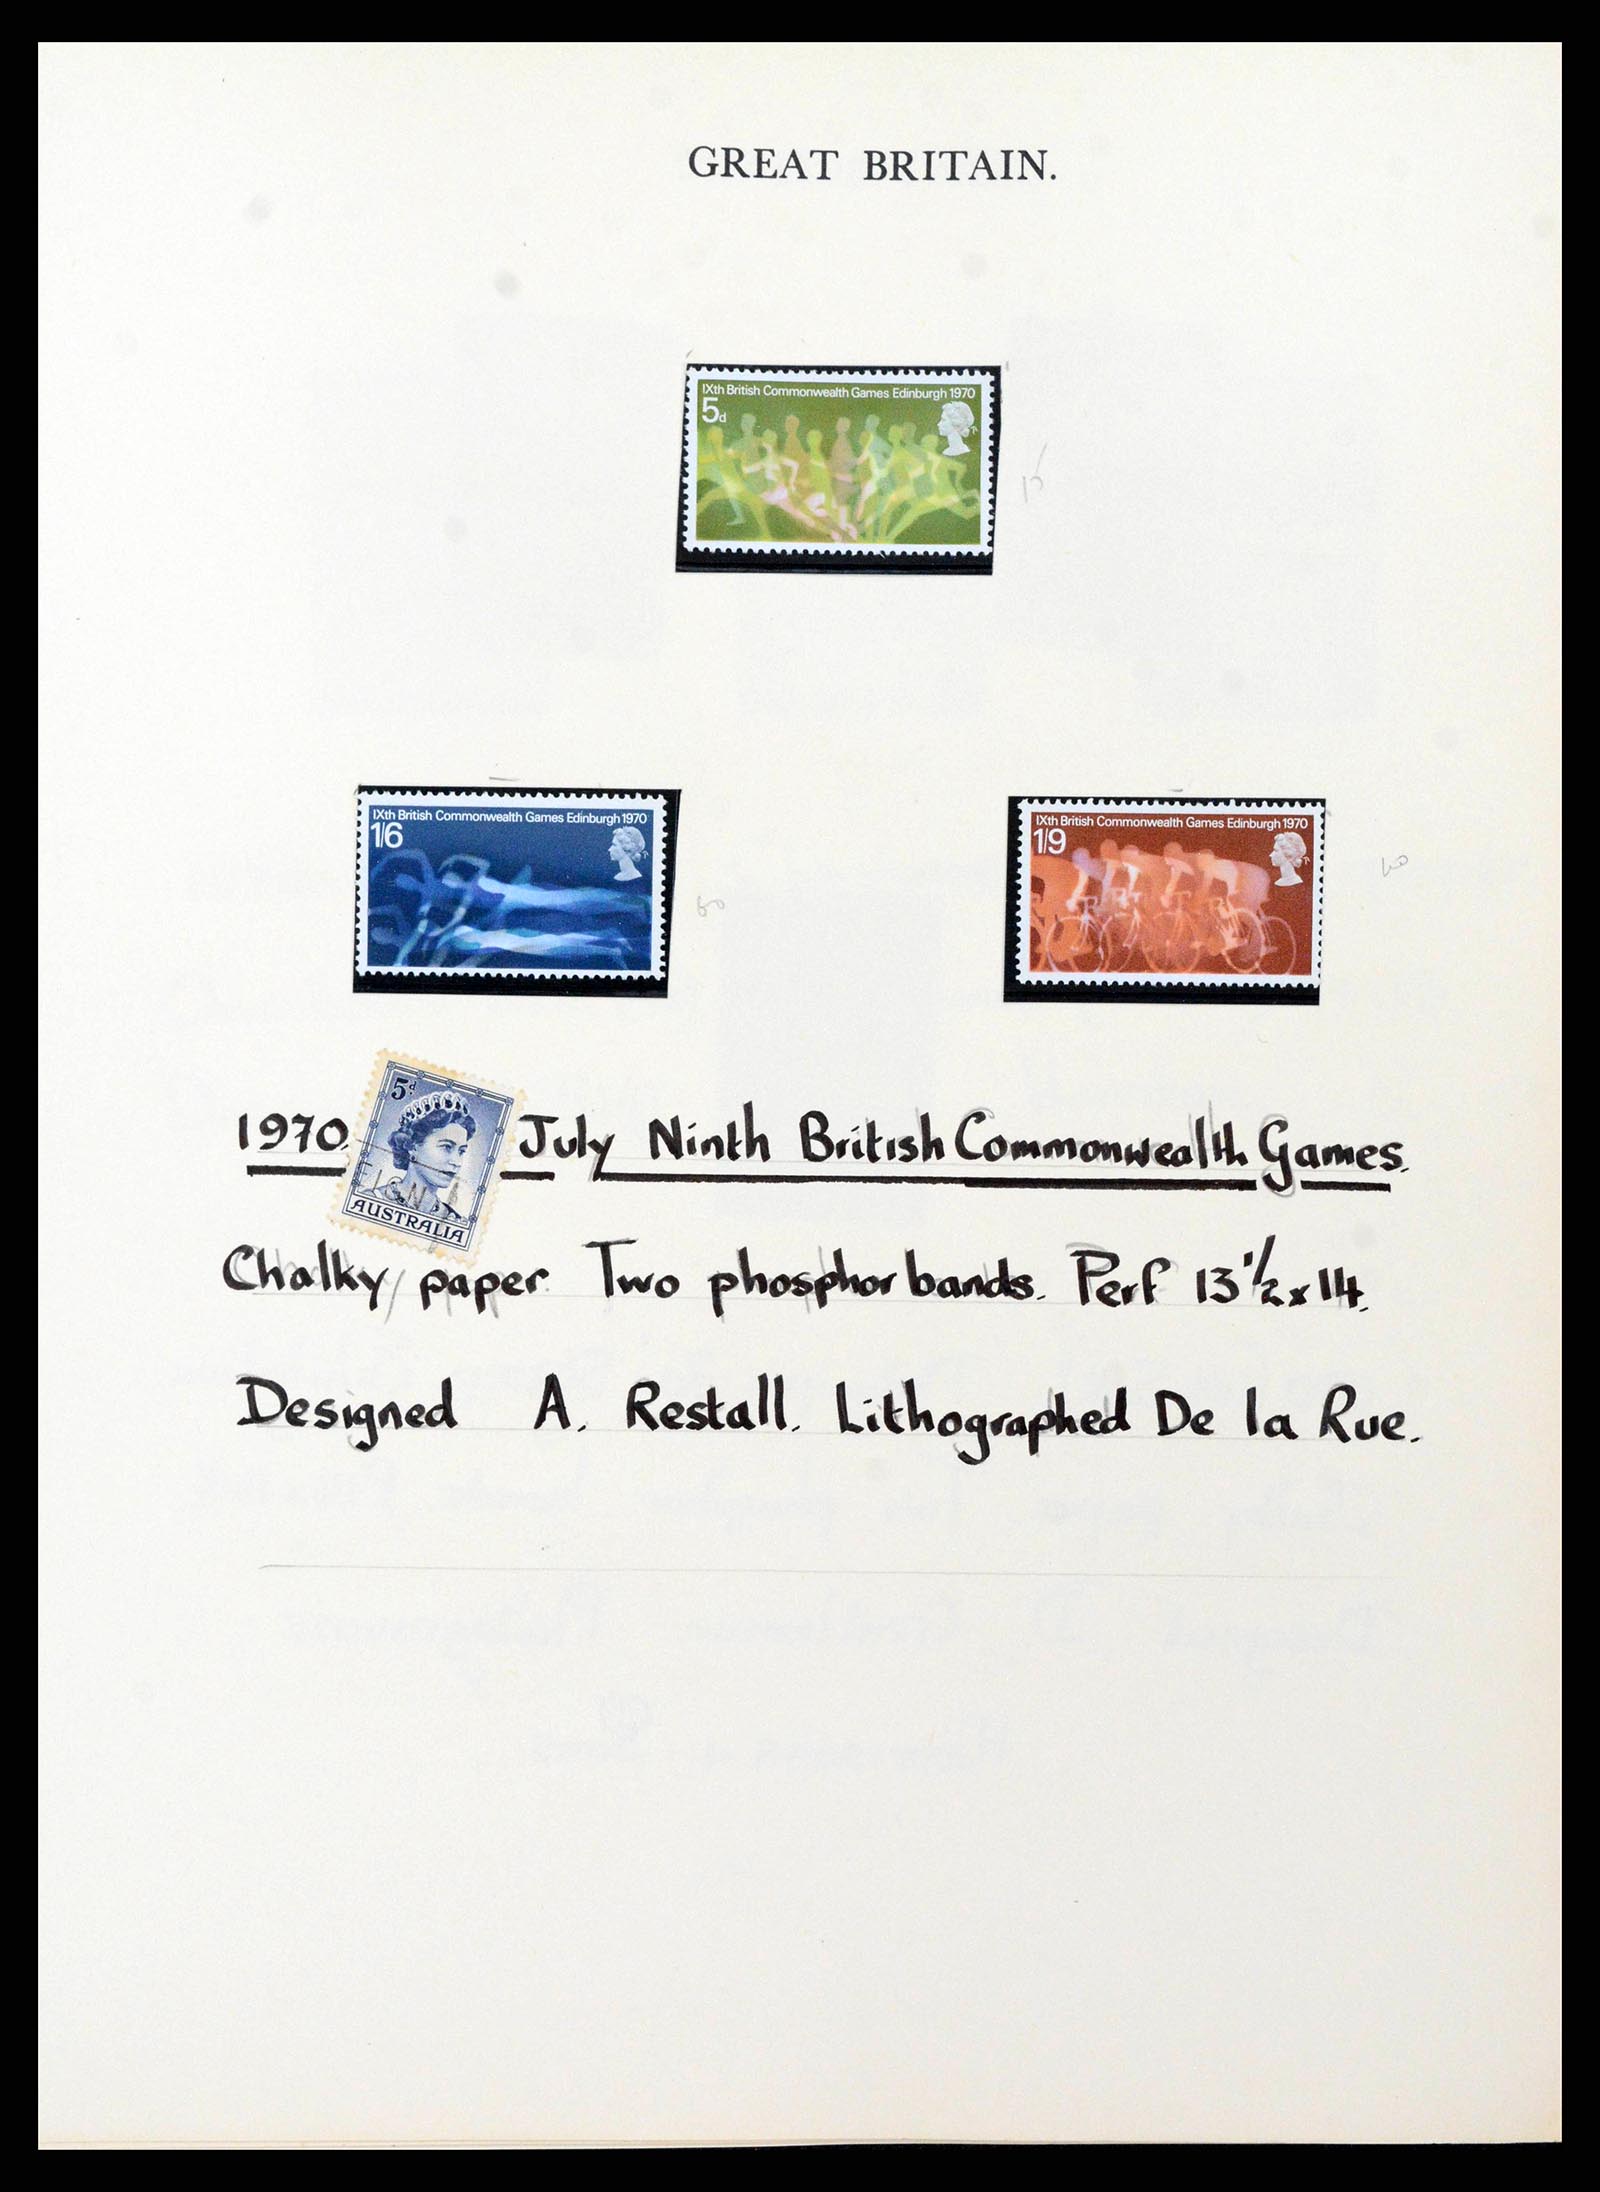 GREAT BRITAIN.
IXth British Commonwealth Games Edinburgh 1970
5d
15
IXth British Commonwealth Games Edinburgh 1970
1/6
IXth British Commonwealth Games Edinburgh 1970
1/9
60
5d
AUSTRALIA
1970. July Ninth British Commonwealth Games.
Chalky paper. Two phosphor bands. Perf 13 1/2 x 14.
Designed A. Restall. Lithographed De la Rue.